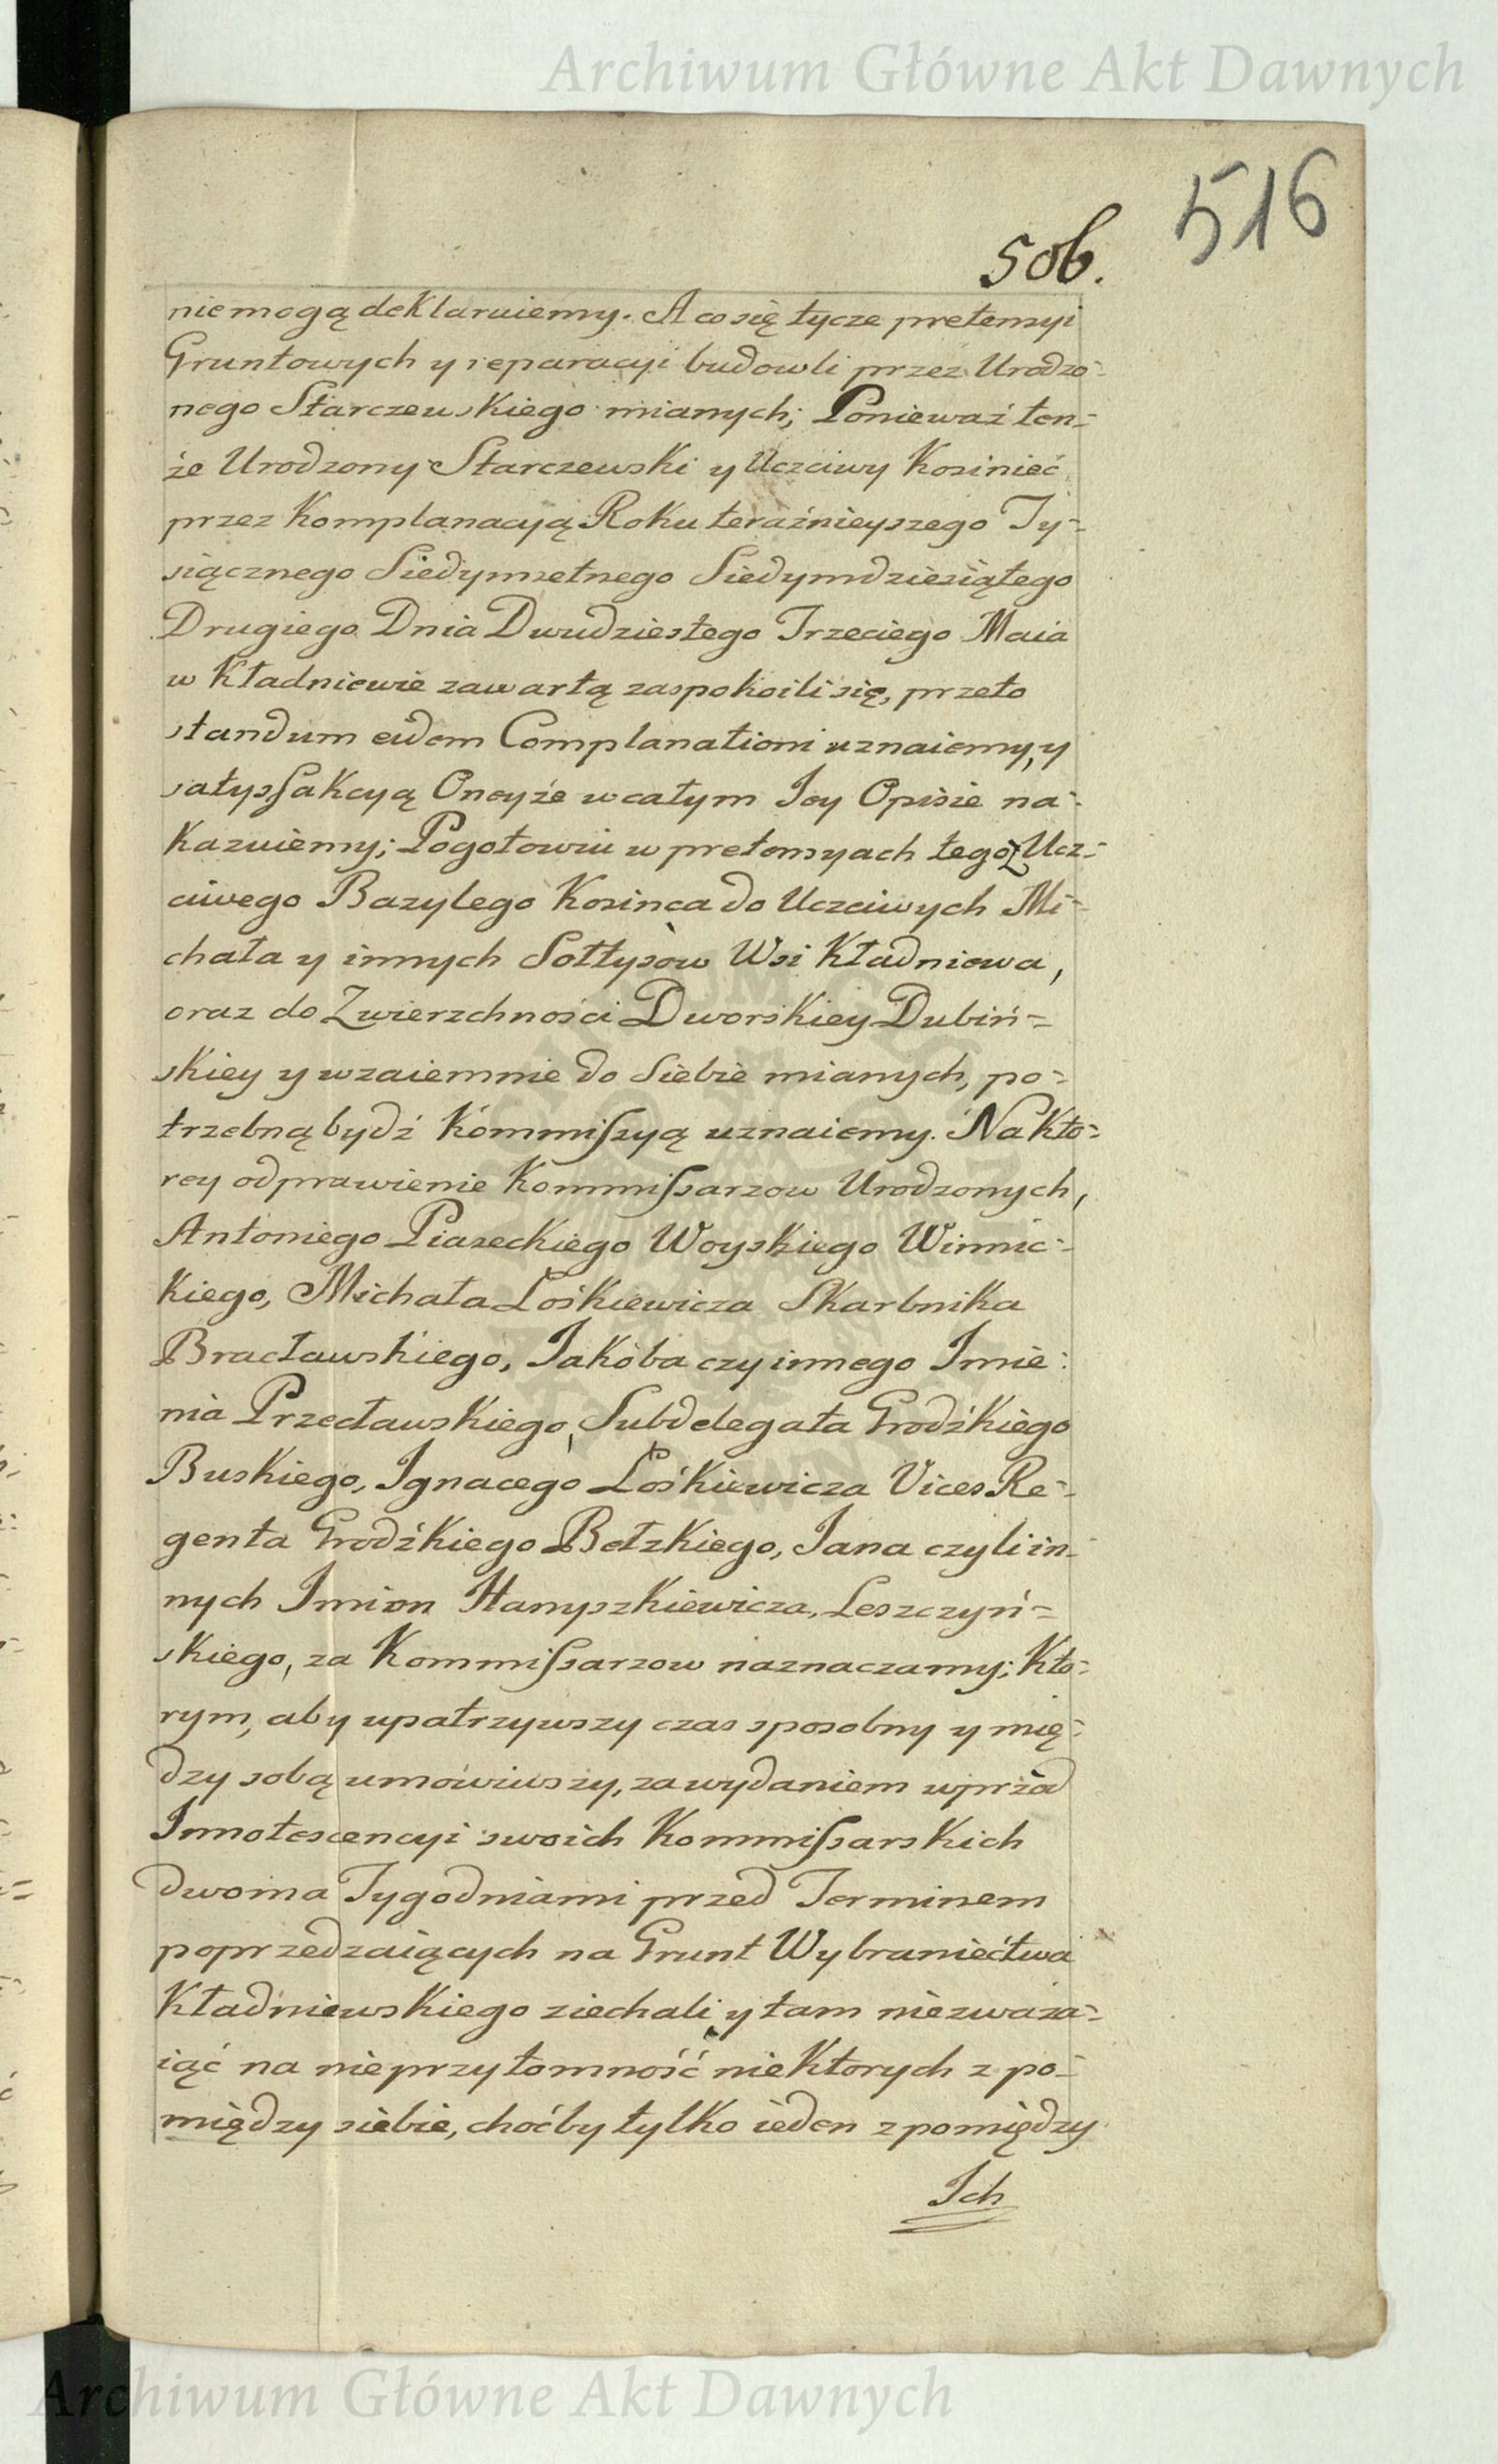 Archiwum Główne Akt Dawnych
516
506.
nie mogą deklaruiemy. A co się tycze pretensyi
Gruntowych y reparacyi budowli przez Urodzo=
nego Starczewskiego mianych; Ponieważ ten=
że Urodzony Starczewski y Uczciwy Kosinieć
przez Komplanacyą Roku teraźnieyszego Ty=
siącznego Siedymsetnego Siedymdziesiątego
Drugiego Dnia Dwudziestego Trzeciego Maia
w Kładniewie zawartą zaspokoili się, przeto
standum eidem Complanationi uznaiemy, y
satysfakcyą Oneyże w całym Jey Opisie na=
kazuiemy; Pogotowiu w pretensyach tegoż Ucz=
ciwego Bazylego Kosinca do Uczciwych Mi=
chała y innych Sołtysòw Wsi Kładniowa,
oraz do Zwierzchności Dworskiey Dubiń=
skiey y wzaiemnie do siebie mianych, po=
trzebną bydź Kommiszyą uznaiemy. Na Kto=
rey odprawienie Kommissarzow Urodzonych,
Antoniego Piaseckiego Woyskiego Winnic=
kiego, Michała Lośkiewicza Skarbnika
Bracławskiego, Jakóba czy innego Imie=
nia Przecławskiego, Subdelegata Grodźkiego
Buskiego, Ignacego Lośkiewicza Vices Re=
genta Grodźkiego Bełzkiego, Jana czyli in=
nych Imion Hampszkiewicza, Leszczyń=
skiego, za Kommissarzow naznaczamy; Kto=
rym, aby upatrzywszy czas sposobny y mię=
dzy sobą umówiwszy, za wydaniem wprzód
Innotescencyi swoich Kommissarskich
dwoma Tygodniami przed Terminem
poprzedzaiących na Grunt Wybraniećtwa
Kładniewskiego ziechali y tam niezwaza=
iąć na nieprzytomność niektorych z po=
między siebie, choćby tylko ieden z pomiędzy
Ich
Archiwum Główne Akt Dawnych